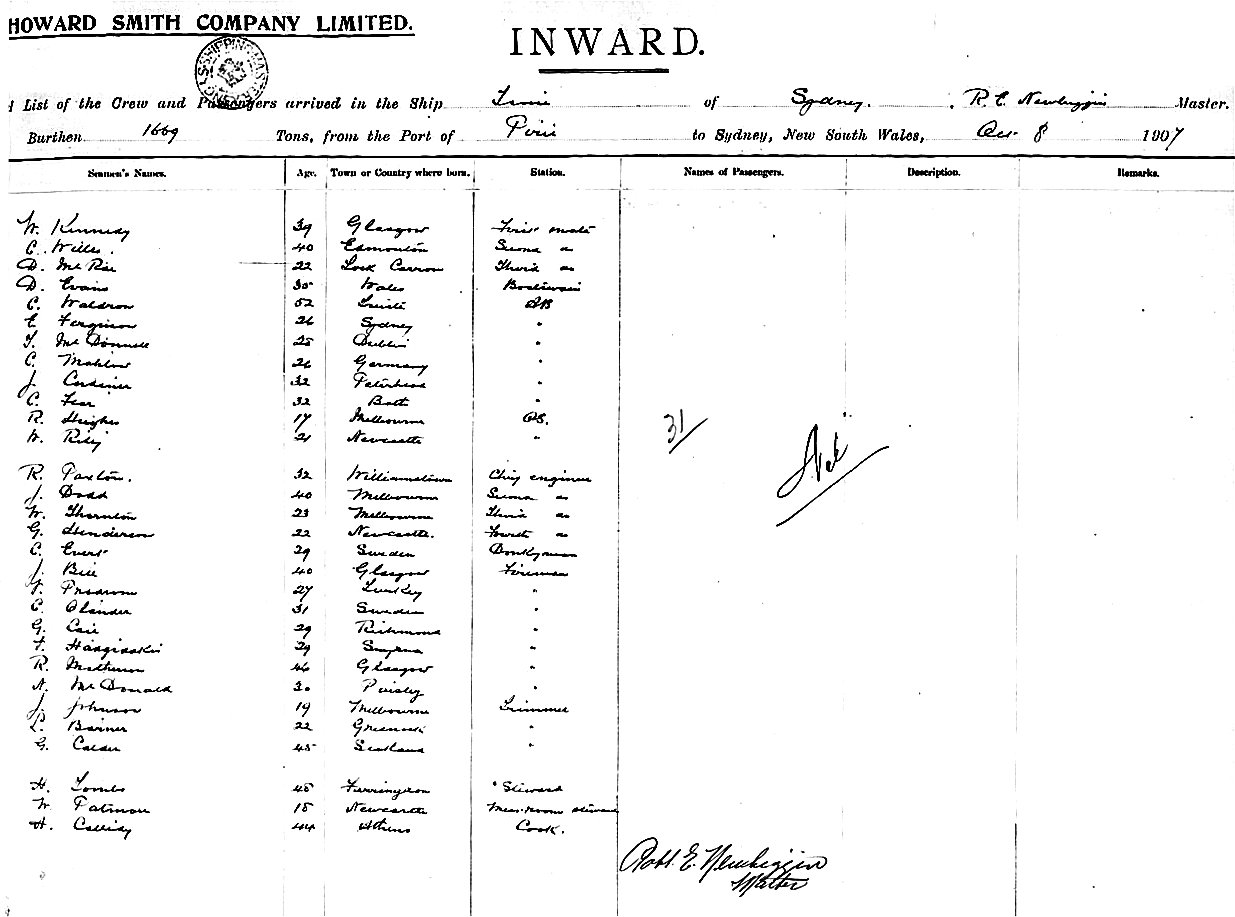 HOWARD SMITH COMPANY LIMITED.
INWARD.
SHIPPING MASTER
List of the Crew and Passengers arrived in the Ship of Sydney. , R. E. Newbiggin Master.
Burthen 1669 Tons, from the Port of Pirie to Sydney, New South Wales, 8 1907
Seamen's Names. Age. Town or Country where born. Station. Names of Passengers. Description. Remarks.
W. Kennedy 39 Glasgow First mate
C. Wills. 40 Edmonton Second do
D. McRae 22 Lock Carron Third do
D. Evans 30 Wales Boatswain
C. Waldron 52 AB
E. Ferguson 26 Sydney "
T. McDonnell 25 Dublin "
C. 26 Germany "
J. Cordiner 32 Peterhead "
C. Fear 32 Bath "
R. Hughes 17 Melbourne OS.
W. Riley 21 Newcastle "
31
Nil
R. Paxton. 32 Williamstown Chief engineer
J. Dodd 40 Melbourne Second do
W. Thornton 23 Melbourne Third do
G. Henderson 22 Newcastle. Fourth do
C. Evert 29 Sweden Donkeyman
J. 40 Glasgow Fireman
27 Turkey "
C. Olander 31 Sweden "
G. 29 Richmond "
29 Smyrna "
R. Matheson 46 Glasgow "
N. McDonald 30 Paisley "
J. Johnson 19 Melbourne Trimmer
22 Greenock "
G. Calder 45 Scotland "
H. Tombs 48 Farringdon Steward
W. Patman 18 Newcastle Mess-room steward
H. 44 Athens Cook.
Robt. E. Newbiggin
Master